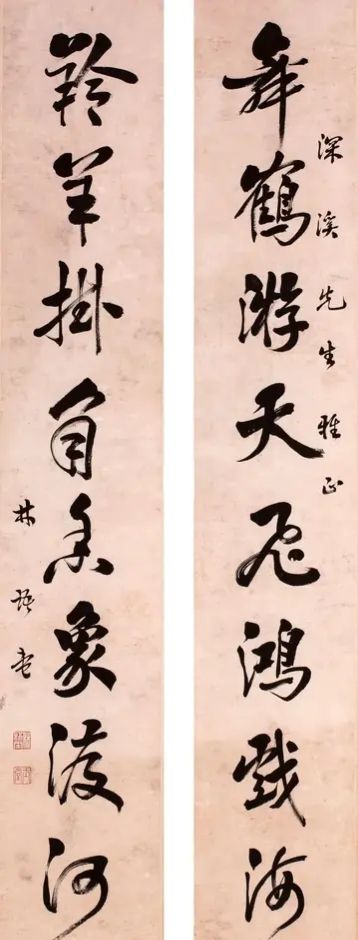 深溪先生雅正
舞鶴游天飛鴻戲海
羚羊掛角香象渡河
林語堂